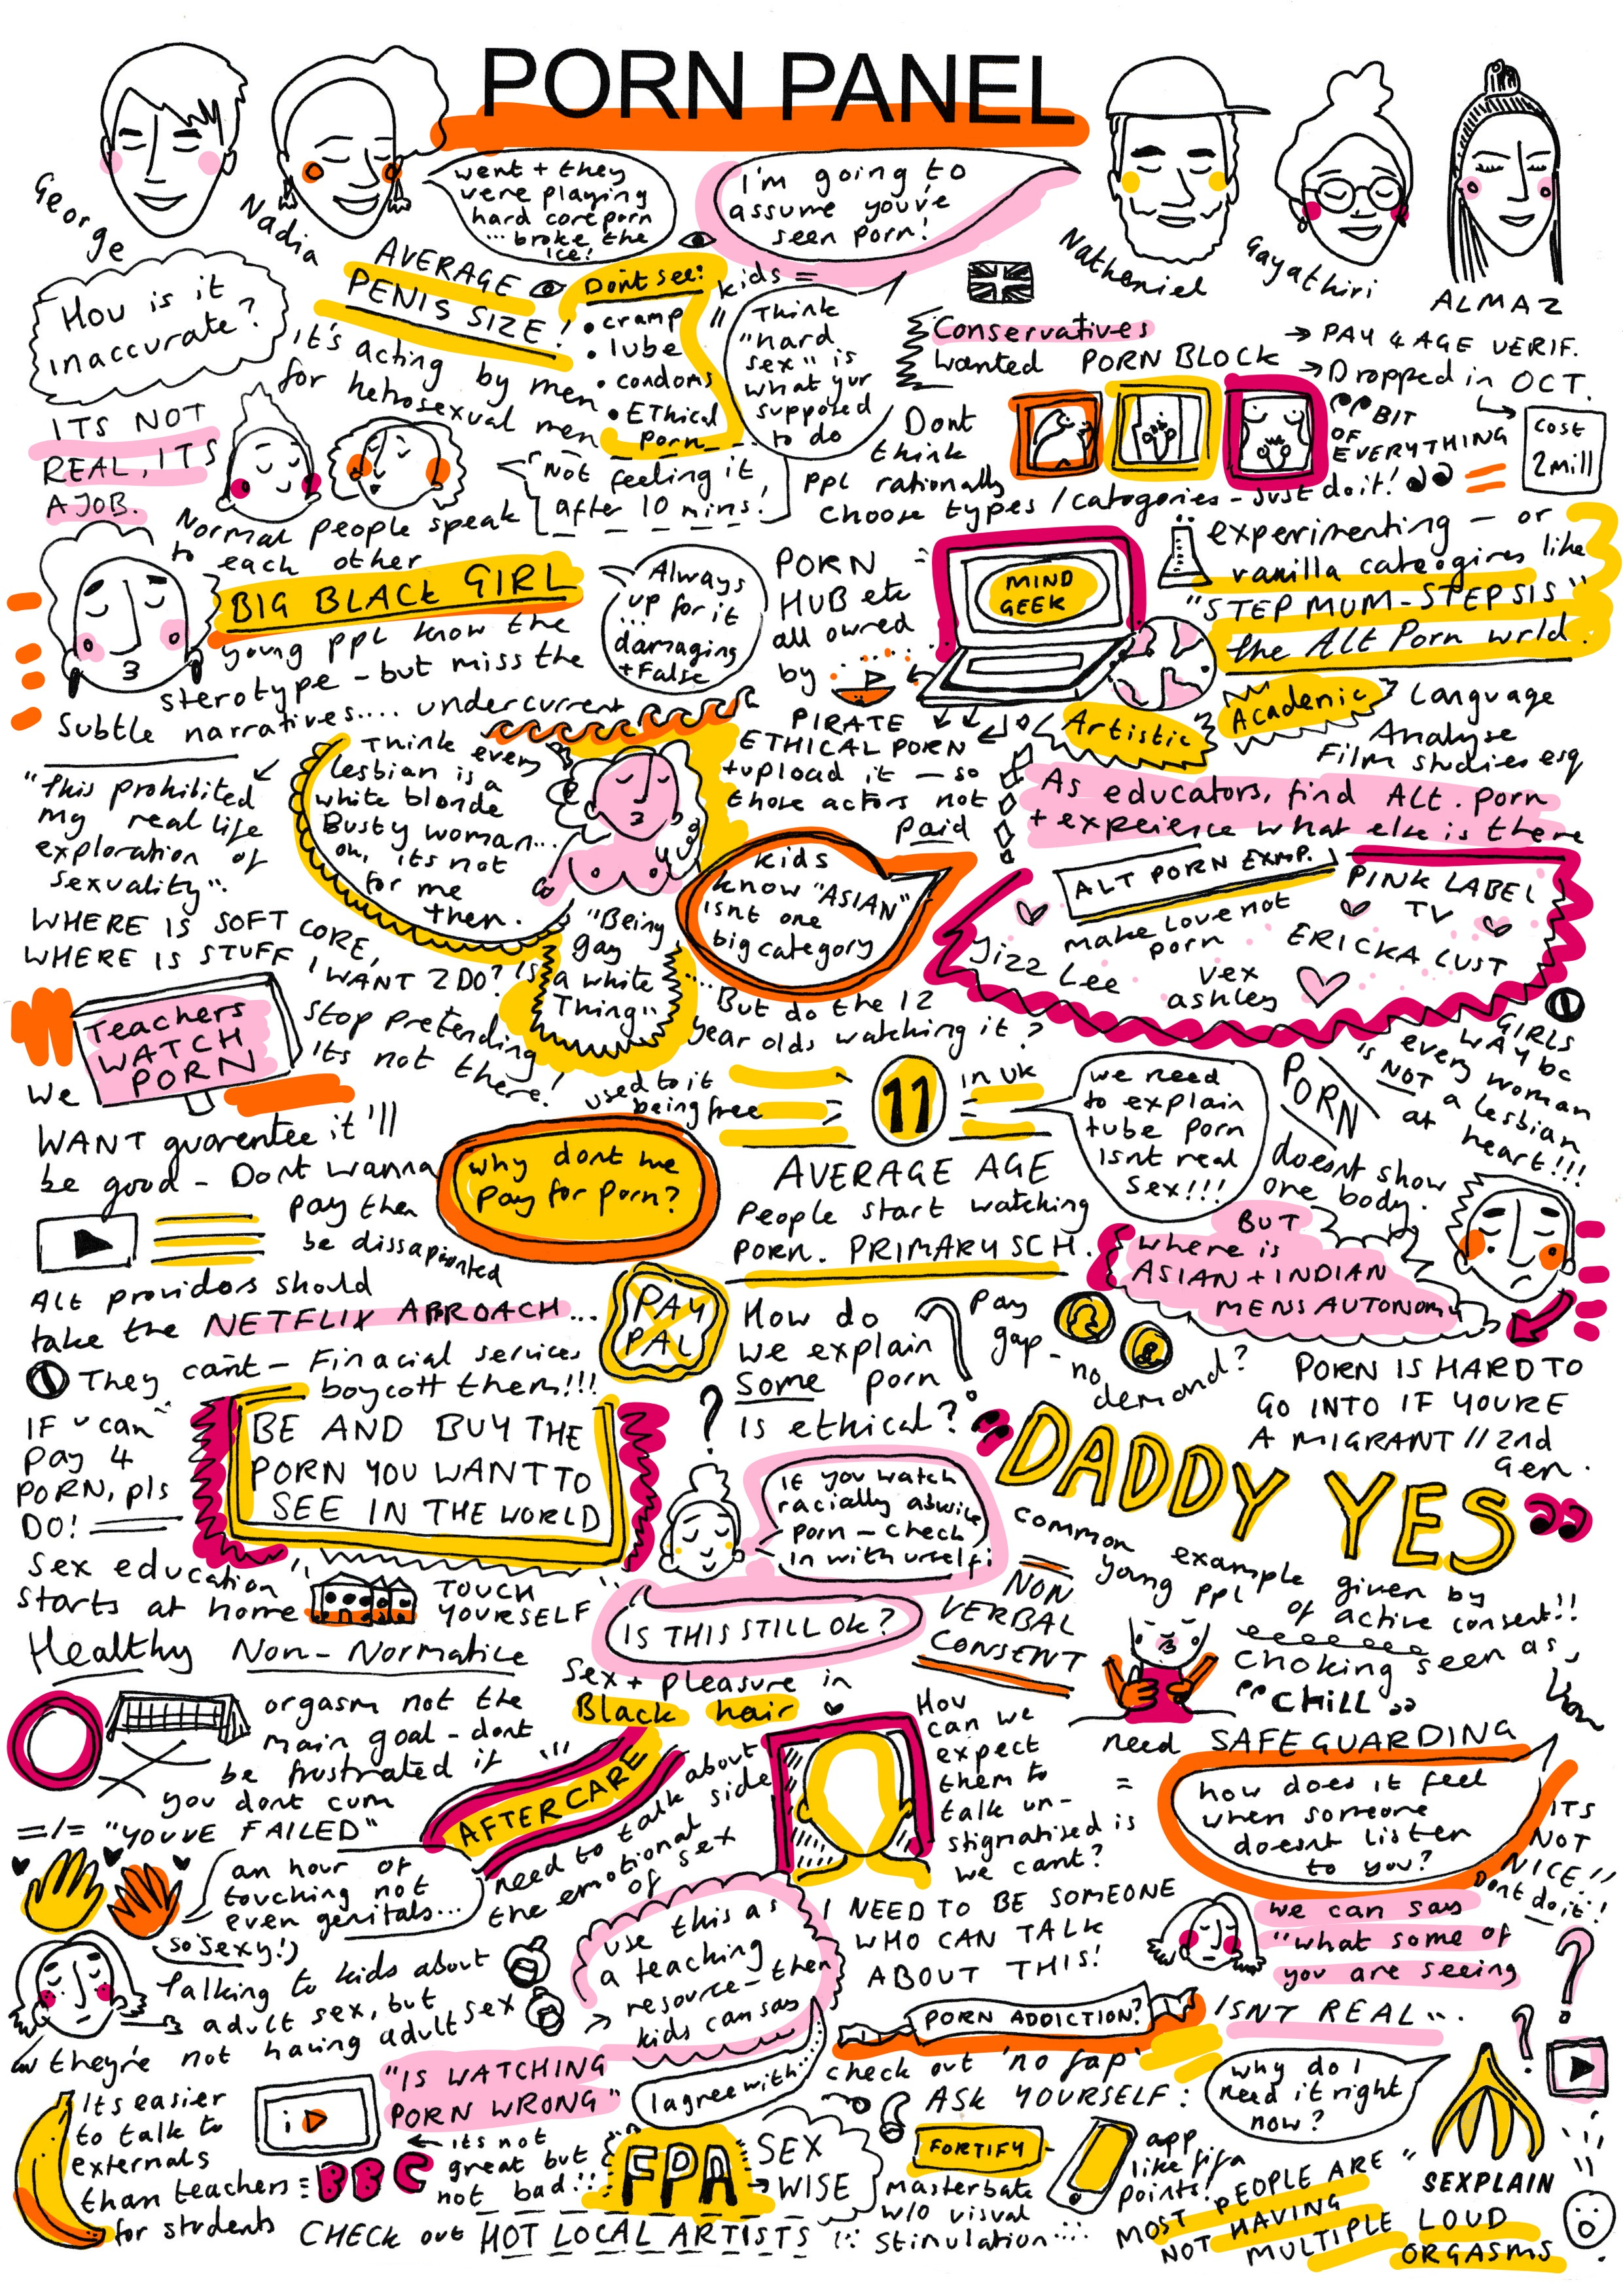 PORN PANEL
George
Nadia
went + they
were playing
hard core porn
... broke the
ice!
I'm going to
assume you've
seen porn!
Natheniel
Gayathiri
ALMAZ
How is it
inaccurate?
AVERAGE
PENIS SIZE!
it's acting by men
for hetrosexual men
Dont see:
• cramp
• lube
• condoms
• EThical
porn
kids =
Think
"hard
sex" is
what yur
supposed
to do
Conservatives
wanted PORN BLOCK
→ PAY 4 AGE VERIF.
→ Dropped in OCT.
cost
2mill
BIT
OF
EVERYTHING
ITS NOT
REAL, ITS
A JOB.
Normal people speak
to each other
"Not feeling it
after 10 mins!
Dont
think
ppl rationally
choose types / catogories - just do it!
experimenting - or
vanilla cateogires like
"STEP MUM - STEP SIS"
the Alt Porn wrld.
BIG BLACK GIRL
young ppl know the
sterotype - but miss the
subtle narratives.... undercurrent
Always
up for it
... damaging
+ False
PORN =
HUB etc
all owned
by
MIND
GEEK
PIRATE
ETHICAL PORN
+ upload it - so
those actors not
paid
Artistic
Academic
Language
Analyse
Film studies esq
As educators, find Alt. porn
+ expreience what else is there
"this prohibited
my real life
exploration of
sexuality".
Think every
lesbian is a
white blonde
Busty woman...
oh, its not
for me
then.
kids
know "ASIAN"
isnt one
big category
... But do the 12
year olds watching it?
"Being
gay
is a white
Thing"
ALT PORN EXMP.
PINK LABEL
TV
make love not
porn
ERICKA LUST
Jizz
Lee
vex
ashley
WHERE IS SOFT CORE,
WHERE IS STUFF I WANT 2 DO?
Stop pretending
its not there!
We
Teachers
WATCH
PORN
WANT guarentee it'll
be good - Dont wanna
pay then
be dissapionted
used to it
being free
why dont we
pay for porn?
11
in UK
AVERAGE AGE
people start watching
porn. PRIMARY SCH.
we need
to explain
tube porn
isnt real
sex!!!
GIRLS
WAY bc
every woman
is NOT a lesbian
at heart!!!
PORN
doesnt show
one body.
BUT
where is
ASIAN + INDIAN
MENS AUTONOMY
Alt providors should
take the NETFLIX APROACH...
They cant - Finacial services
boycott them!!!
PAY
PAL
How do
we explain
some porn
is ethical?
pay
gap - no
demand?
PORN IS HARD TO
GO INTO IF YOURE
A MIGRANT // 2nd
Gen.
IF u can
pay 4
PORN, pls
DO!
BE AND BUY THE
PORN YOU WANT TO
SEE IN THE WORLD
If you watch
racially abusive
porn - check
in with urself:
IS THIS STILL OK?
"DADDY YES"
common example given by
young ppl of active consent!!
NON
VERBAL
CONSENT
Choking seen as
"CHILL"
Sex education
starts at home
TOUCH
YOURSELF
Healthy Non-Normative
orgasm not the
main goal - dont
be frustrated if
you dont cum
=/= "YOUVE FAILED"
Sex + pleasure in
Black hair
AFTERCARE
need to talk about
the emotional side
of sex
How
can we
expect
them to
talk un-
stigmatised is
we cant?
need SAFEGUARDING
=
how does it feel
when someone
doesnt listen
to you?
ITS
NOT
NICE!!
Dont do it!
an hour of
touching not
even genitals...
(so sexy!)
Talking to kids about
adult sex, but
they're not having adult sex
use this as
a teaching
resource - then
kids can say
I agree with...
I NEED TO BE SOMEONE
WHO CAN TALK
ABOUT THIS!
we can say
"what some of
you are seeing
ISNT REAL"..
PORN ADDICTION?
check out 'no fap'
ASK YOURSELF:
why do I
need it right
now?
Its easier
to talk to
externals
than teachers
for students
"IS WATCHING
PORN WRONG"
BBC
← its not
great but
not bad!!
FPA
→ SEX
WISE
FORTIFY
Masterbate
w/o visual
stimulation
app
like fifa
points!
CHECK out HOT LOCAL ARTISTS
MOST PEOPLE ARE
NOT HAVING
MULTIPLE LOUD
ORGASMS
SEXPLAIN